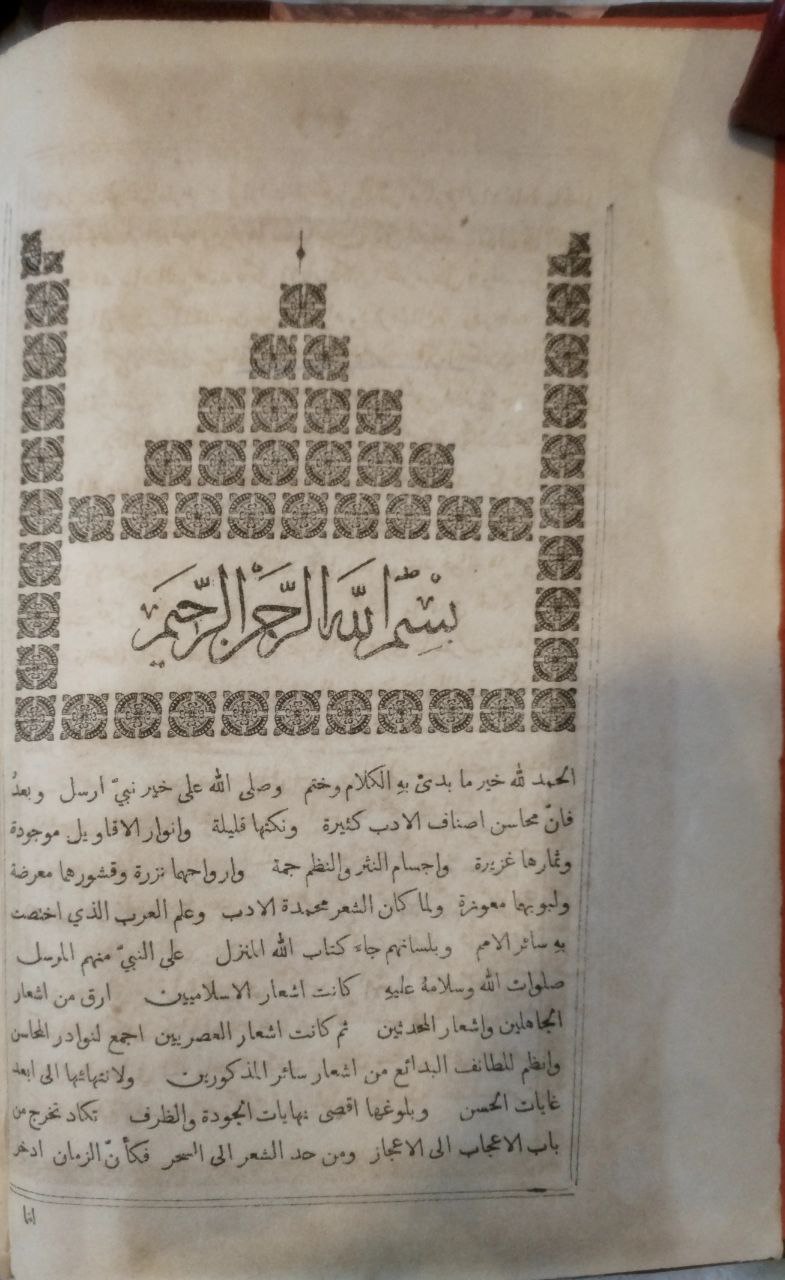 بِسْمِ اللّٰهِ الرَّحْمٰنِ الرَّحِيمِ
الحمد لله خير ما بدئ بهِ الكلام وختم وصلى الله على خير نبيّ ارسل وبعدُ
فانّ محاسن اصناف الادب كثيرة ونكتها قليلة وانوار الاقاويل موجودة
وثمارها غزيرة واجسام النثر والنظم جمة وارواحهما نزرة وقشورهما معرضة
ولبوبهما معوزة ولما كان الشعر محمدة الادب وعلم العرب الذي اختصت
بهِ سائر الامم وبلسانهم جاءَ كتاب الله المنزل على النبيّ منهم المرسل
صلوات الله وسلامهُ عليهِ كانت اشعار الاسلاميين ارق من اشعار
الجاهلين واشعار المحدثين ثم كانت اشعار العصريين اجمع لنوادر المحاسن
وانظم للطائف البدائع من اشعار سائر المذكورين ولانتهائها الى ابعد
غايات الحسن وبلوغها اقصى نهايات الجودة والظرف تكاد تخرج من
باب الاعجاب الى الاعجاز ومن حد الشعر الى السحر فكأنّ الزمان ادخر
انا